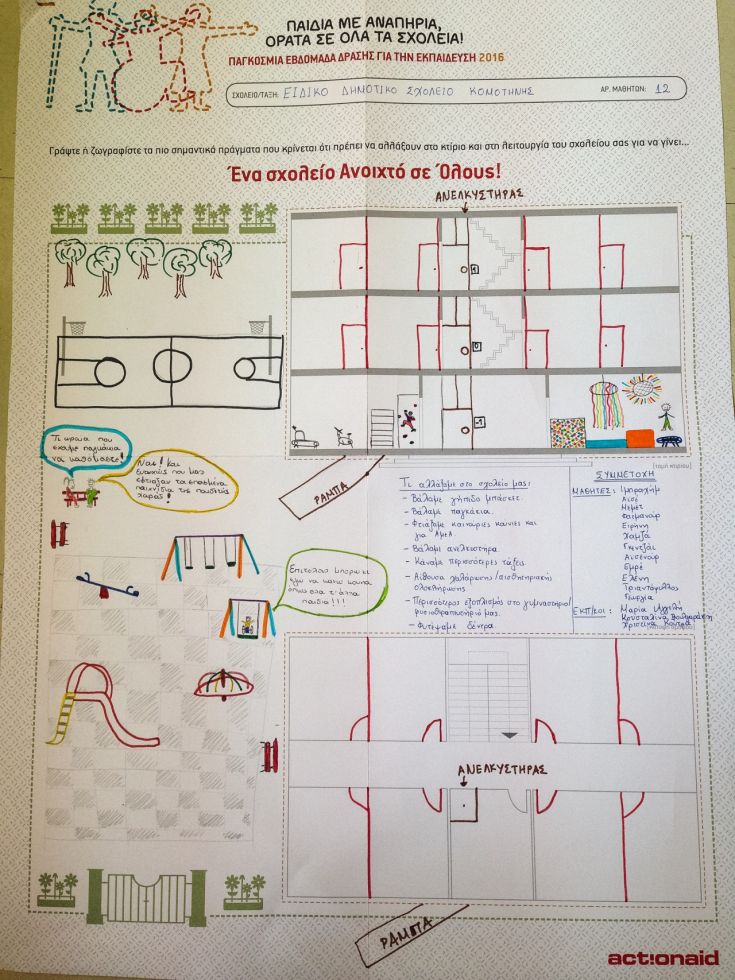 ΠΑΙΔΙΑ ΜΕ ΑΝΑΠΗΡΙΑ,
ΟΡΑΤΑ ΣΕ ΟΛΑ ΤΑ ΣΧΟΛΕΙΑ!
ΠΑΓΚΟΣΜΙΑ ΕΒΔΟΜΑΔΑ ΔΡΑΣΗΣ ΓΙΑ ΤΗΝ ΕΚΠΑΙΔΕΥΣΗ 2016
ΣΧΟΛΕΙΟ/ΤΑΞΗ: ΕΙΔΙΚΟ ΔΗΜΟΤΙΚΟ ΣΧΟΛΕΙΟ ΚΟΜΟΤΗΝΗΣ ΑΡ. ΜΑΘΗΤΩΝ: 12
Γράψτε ή ζωγραφίστε τα πιο σημαντικά πράγματα που κρίνεται ότι πρέπει να αλλάξουν στο κτίριο και στη λειτουργία του σχολείου σας για να γίνει...
Ένα σχολείο Ανοιχτό σε Όλους!
ΑΝΕΛΚΥΣΤΗΡΑΣ
1
0
-1
[τομή κτιρίου]
Τι ωραία που
έχουμε παγκάκια
να καθόμαστε!
Ναι! Και
ευτυχώς που μας
έφτιαξαν τα σπασμένα
παιχνίδια της παιδικής
χαράς!
ΡΑΜΠΑ
Επιτέλους μπορώ κι
εγώ να κάνω κούνια
όπως όλα τ' άλλα
παιδιά!!!
Τι αλλάξαμε στο σχολείο μας:
- Βάλαμε γήπεδο μπάσκετ.
- Βάλαμε παγκάκια.
- Φτιάξαμε καινούριες κούνιες και
για ΑμεΑ
- Βάλαμε ανελκυστήρα.
- Κάναμε περισσότερες τάξεις.
- Αίθουσα χαλάρωσης/αισθητηριακής
ολοκλήρωσης
- Περισσότερος εξοπλισμός στο γυμναστήριο/
φυσιοθεραπευτήριό μας.
- Φυτέψαμε δέντρα.
ΣΥΜΜΕΤΟΧΗ
ΜΑΘΗΤΕΣ: Ιμπραχήμ
Αισέ
Μεμέτ
Ειρήνη
Χαμζά
Αισενούρ
Εμρέ
Ελένη
Τριαντάφυλλος
Γεωργία
ΕΚΠ/ΚΟΙ: Μαρία
Χριστίνα Κούτρα
ΑΝΕΛΚΥΣΤΗΡΑΣ
ΡΑΜΠΑ
act!onaid